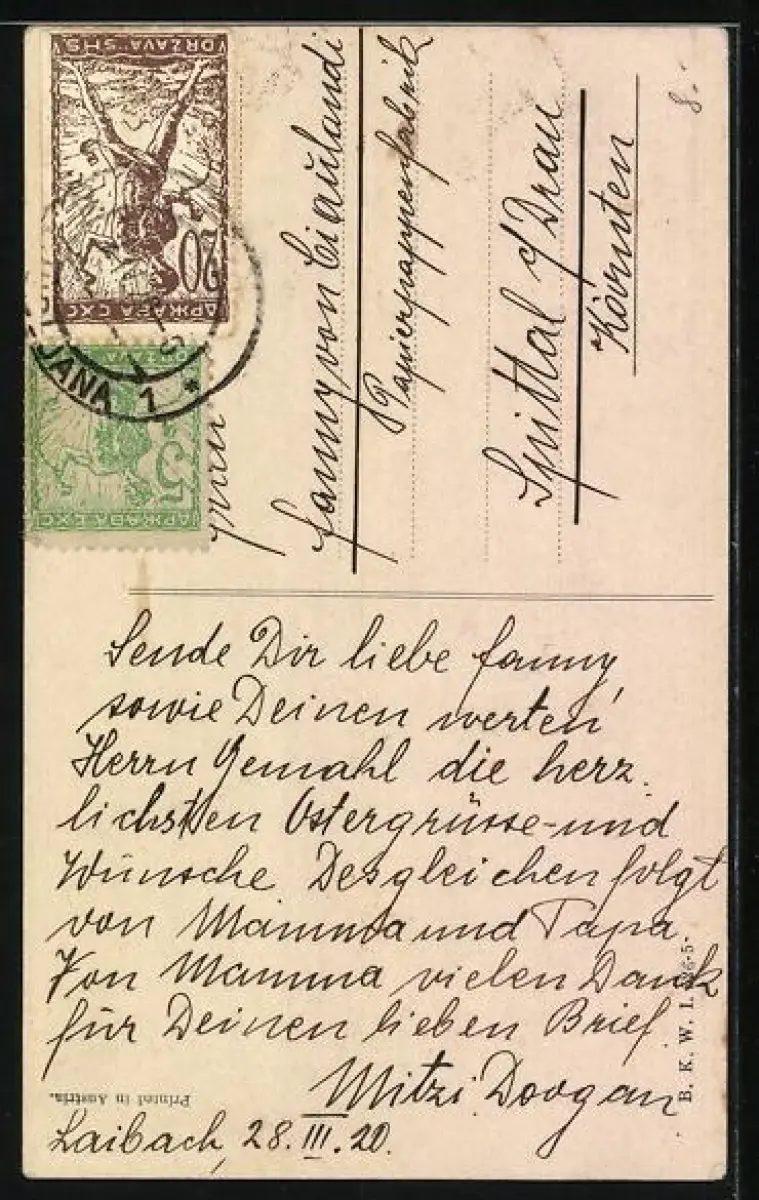 Frau
Fanny von Ciaulandi
Papierpappenfabrik
Spittal a/Drau
Kärnten
8.-
DRŽAVA SHS
20
ДРЖАВА СХС
DRŽAVA
5
ДРЖАВА СХС
JANA 1 *
Sende Dir liebe Fanny,
sowie Deinen werten
Herrn Gemahl die herz.
lichsten Ostergrüsse-und
Wünsche Desgleichen folgt
von Mamma und Papa.
Von Mamma vielen Dank
für Deinen lieben Brief.
Mitzi Dovgan
Laibach, 28.III.20.
Printed in Austria.
B. K. W. I.